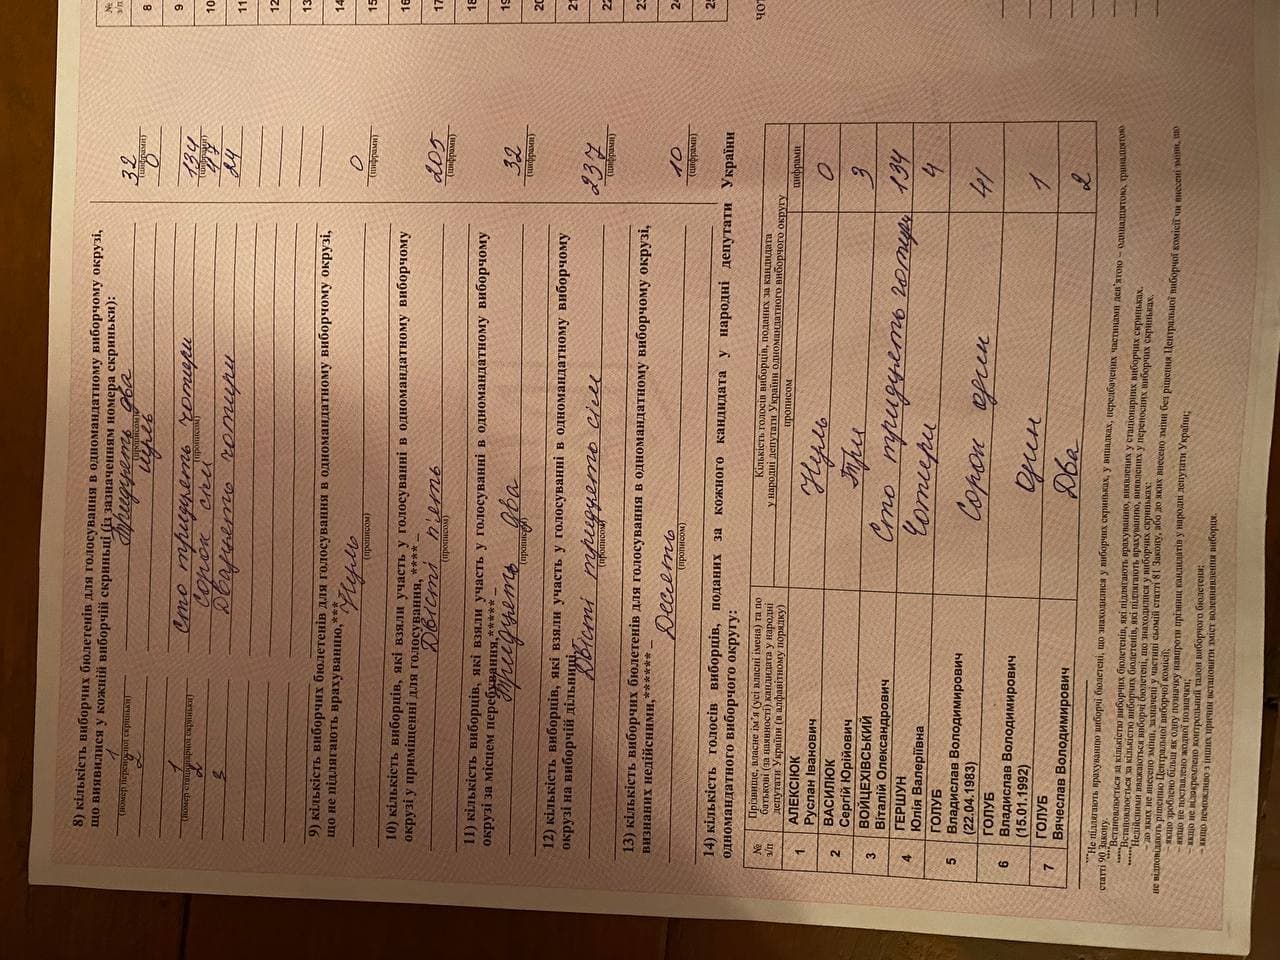 8) кількість виборчих бюлетенів для голосування в одномандатному виборчому окрузі,
що виявилися у кожній виборчій скриньці (із зазначенням номера скриньки):
1 Тридцять два 32
(номер переносної скриньки) (прописом) (цифрами)
2 нуль 0
1 Сто тридцять чотири 134
(номер стаціонарної скриньки) (прописом) (цифрами)
2 Сорок сім 47
3 Двадцять чотири 24
9) кількість виборчих бюлетенів для голосування в одномандатному виборчому окрузі,
що не підлягають врахуванню,***
Нуль 0
(прописом) (цифрами)
10) кількість виборців, які взяли участь у голосуванні в одномандатному виборчому
окрузі у приміщенні для голосування, ****
Двісті п'ять 205
(прописом) (цифрами)
11) кількість виборців, які взяли участь у голосуванні в одномандатному виборчому
окрузі за місцем перебування,*****
Тридцять два 32
(прописом) (цифрами)
12) кількість виборців, які взяли участь у голосуванні в одномандатному виборчому
окрузі на виборчій дільниці
Двісті тридцять сім 237
(прописом) (цифрами)
13) кількість виборчих бюлетенів для голосування в одномандатному виборчому окрузі,
визнаних недійсними,******
Десять 10
(прописом) (цифрами)
14) кількість голосів виборців, поданих за кожного кандидата у народні депутати України
одномандатного виборчого округу:
№ з/п
Прізвище, власне ім'я (усі власні імена) та по
батькові (за наявності) кандидата у народні
депутати України (в алфавітному порядку)
Кількість голосів виборців, поданих за кандидата
у народні депутати України одномандатного виборчого округу
прописом цифрами
1 АЛЕКСІЮК Руслан Іванович Нуль 0
2 ВАСИЛЮК Сергій Юрійович Три 3
3 ВОЙЦЕХІВСЬКИЙ Віталій Олександрович Сто тридцять чотири 134
4 ГЕРШУН Юлія Валеріївна Чотири 4
5 ГОЛУБ Владислав Володимирович (22.04.1983) Сорок один 41
6 ГОЛУБ Владислав Володимирович (15.01.1992) Один 1
7 ГОЛУБ Вячеслав Володимирович Два 2
***Не підлягають врахуванню виборчі бюлетені, що знаходилися у виборчих скриньках, у випадках, передбачених частинами дев'ятою – одинадцятою, тринадцятою
статті 90 Закону.
****Встановлюється за кількістю виборчих бюлетенів, які підлягають врахуванню, виявлених у стаціонарних виборчих скриньках.
*****Встановлюється за кількістю виборчих бюлетенів, які підлягають врахуванню, виявлених у переносних виборчих скриньках.
******Недійсними вважаються виборчі бюлетені, що знаходилися у виборчих скриньках:
– до яких не внесено зміни, зазначені у частині сьомій статті 81 Закону, або до яких внесено зміни без рішення Центральної виборчої комісії чи внесені зміни, що
не відповідають рішенню Центральної виборчої комісії;
– якщо зроблено більш як одну позначку навпроти прізвищ кандидатів у народні депутати України;
– якщо не поставлено жодної позначки;
– якщо не відокремлено контрольний талон виборчого бюлетеня;
– якщо неможливо з інших причин встановити зміст волевиявлення виборця.
№ з/п
8
9
10
11
12
13
14
15
16
17
18
19
20
21
22
23
24
25